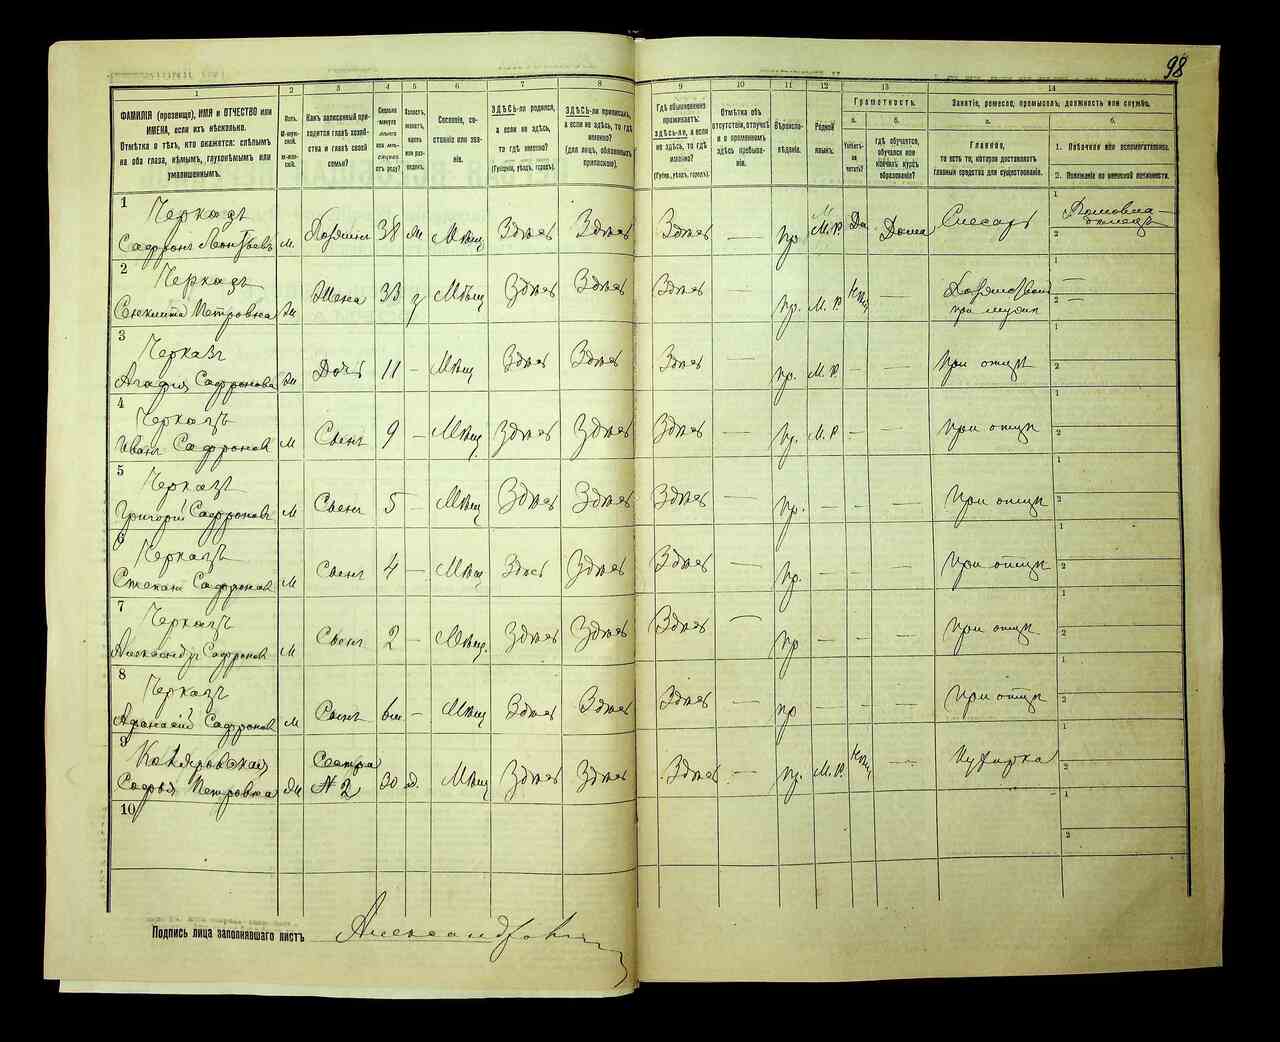 98
1 2 3 4 5 6 7 8 9 10 11 12 13 14
ФАМИЛІЯ (прозвище), ИМЯ и ОТЧЕСТВО или ИМЕНА, если ихъ нѣсколько.
Отмѣтка о тѣхъ, кто окажется: слѣпымъ на оба глаза, нѣмымъ, глухонѣмымъ или умалишеннымъ.
Полъ.
М-мужской.
Ж-женскій.
Какъ записанный приходится главѣ хозяйства и главѣ своей семьи?
Сколько минуло лѣтъ или мѣсяцевъ отъ роду?
Холостъ, женатъ, вдовъ или разведенъ.
Сословіе, состояніе или званіе.
ЗДѢСЬ-ли родился, а если не здѣсь, то гдѣ именно?
(Губернія, уѣздъ, городъ).
ЗДѢСЬ-ли приписанъ, а если не здѣсь, то гдѣ именно?
(для лицъ, обязанныхъ припискою).
Гдѣ обыкновенно проживаетъ: ЗДѢСЬ-ли, а если не здѣсь, то гдѣ именно?
(Губер., уѣздъ, городъ).
Отмѣтка объ отсутствіи, отлучкѣ и о временномъ здѣсь пребываніи.
Вѣроисповѣданіе.
Родной языкъ.
Грамотность.
а. б.
Умѣетъ-ли читать?
гдѣ обучается, обучался или кончилъ курсъ образованія?
Занятіе, ремесло, промыселъ, должность или служба.
а. б.
Главное,
то есть то, которое доставляетъ главныя средства для существованія.
1. Побочное или вспомогательное.
2. Положеніе по воинской повинности.
1 Черказъ
Сафронъ Леонтьевъ м Хозяинъ 38 ж Мѣщ Здѣсь Здѣсь Здѣсь — пр М. Р. Да Дома Слесарь
2 Черказъ
Петровна ж Жена 33 з Мѣщ Здѣсь Здѣсь Здѣсь — пр. М. Р. — при мужѣ
3 Черказъ
Агафія Сафронова ж Дочь 11 — Мѣщ Здѣсь Здѣсь Здѣсь — пр. М. Р. — — при отцѣ
4 Черказъ
Иванъ Сафроновъ м Сынъ 9 — Мѣщ Здѣсь Здѣсь Здѣсь — пр. М. Р. — — при отцѣ
5 Черказъ
Григорій Сафроновъ м Сынъ 5 — Мѣщ Здѣсь Здѣсь Здѣсь — пр. — — — при отцѣ
6 Черказъ
Степанъ Сафроновъ м Сынъ 4 — Мѣщ Здѣсь Здѣсь Здѣсь — пр. — — — при отцѣ
7 Черказъ
Александръ Сафроновъ м Сынъ 2 — Мѣщ. Здѣсь Здѣсь Здѣсь — пр — — — при отцѣ
8 Черказъ
Афанасій Сафроновъ м Сынъ 6м — Мѣщ Здѣсь Здѣсь Здѣсь — пр — — — при отцѣ
9 Сестра
Софья Петровна ж № 2 30 д. Мѣщ Здѣсь Здѣсь Здѣсь — пр. М. Р. — Кухарка
10
Подпись лица заполнявшаго листъ Александровичъ